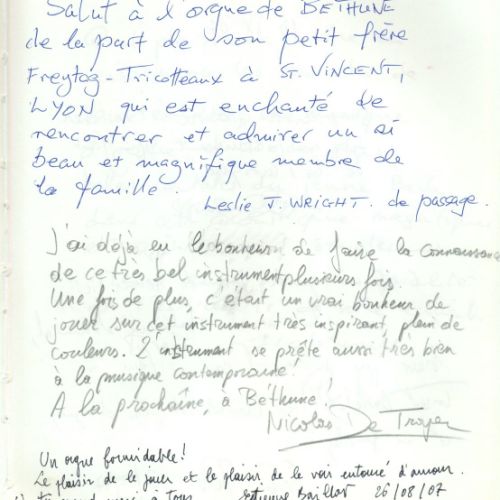 Salut à l'orgue de BETHUNE
de la part de son petit frère
Freytag-Tricotteaux à ST. VINCENT,
LYON qui est enchanté de
rencontrer et admirer un si
beau et magnifique membre de
la famille.
Leslie J. WRIGHT. de passage.
J'ai déjà eu le bonheur de faire la connaissance
de ce très bel instrument plusieurs fois.
Une fois de plus, c'était un vrai bonheur de
jouer sur cet instrument très inspirant, plein de
couleurs. L'instrument se prête aussi très bien
à la musique contemporaine!
A la prochaine, à Béthune!
Nicolas De Troyer
Un orgue formidable!
Le plaisir de le jouer et le plaisir de le voir entouré d'amour.
à tous
Etienne Baillot 26/08/07